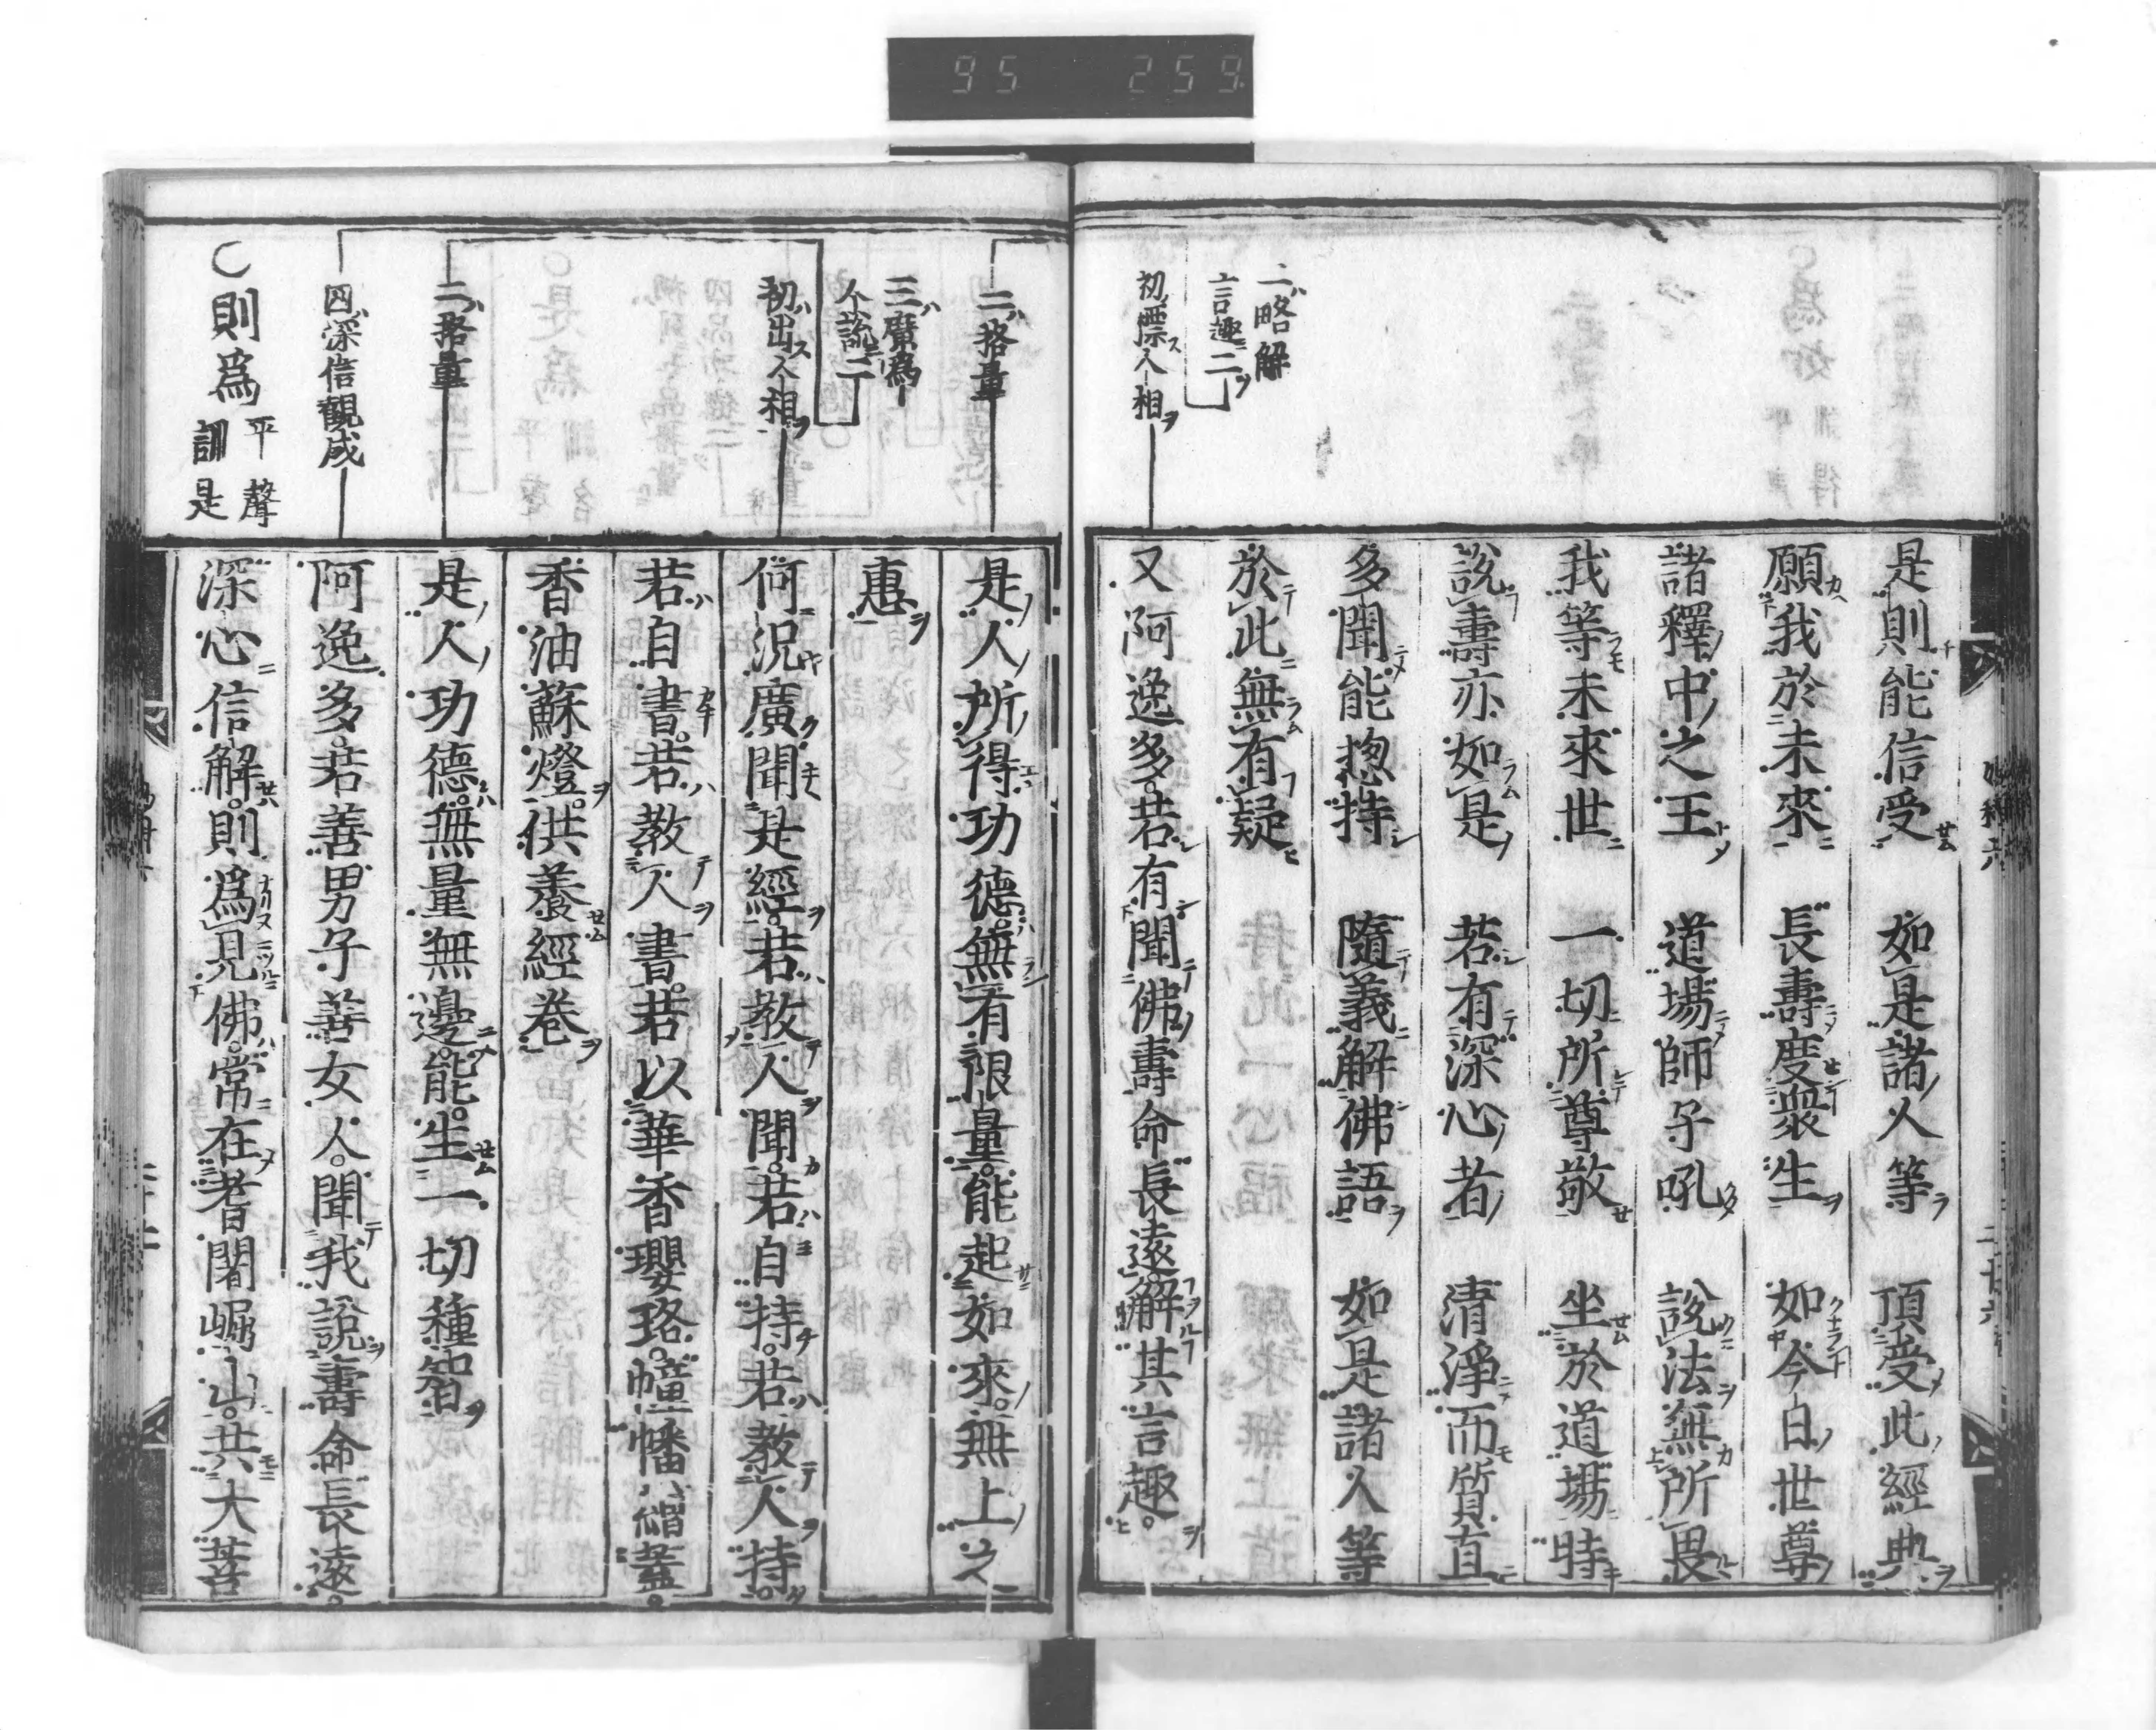 95 259
二略解
言趣二
初標人相
是則能信受 如是諸人等 頂受此經典
願我於未來 長壽度衆生 如今日世尊
諸釋中之王 道場師子吼 說法無所畏
我等未來世 一切所尊敬 坐於道場時
說壽亦如是 若有深心者 清淨而質直
多聞能揔持 隨義解佛語 如是諸人等
於此無有疑
又阿逸多若有聞佛壽命長遠解其言趣
二挌量
三廣為
人說二
初出人相
二挌量
四深信觀成
○則爲平聲訓是
是人所得功德無有限量能起如來無上之
惠
何況廣聞是經若教人聞若自持若教人持
若自書若教人書若以華香瓔珞幢幡繒蓋
香油蘇燈供養經卷
是人功德無量無邊能生一切種智
阿逸多若善男子善女人聞我說壽命長遠
深心信解則爲見佛常在耆闍崛山共大菩